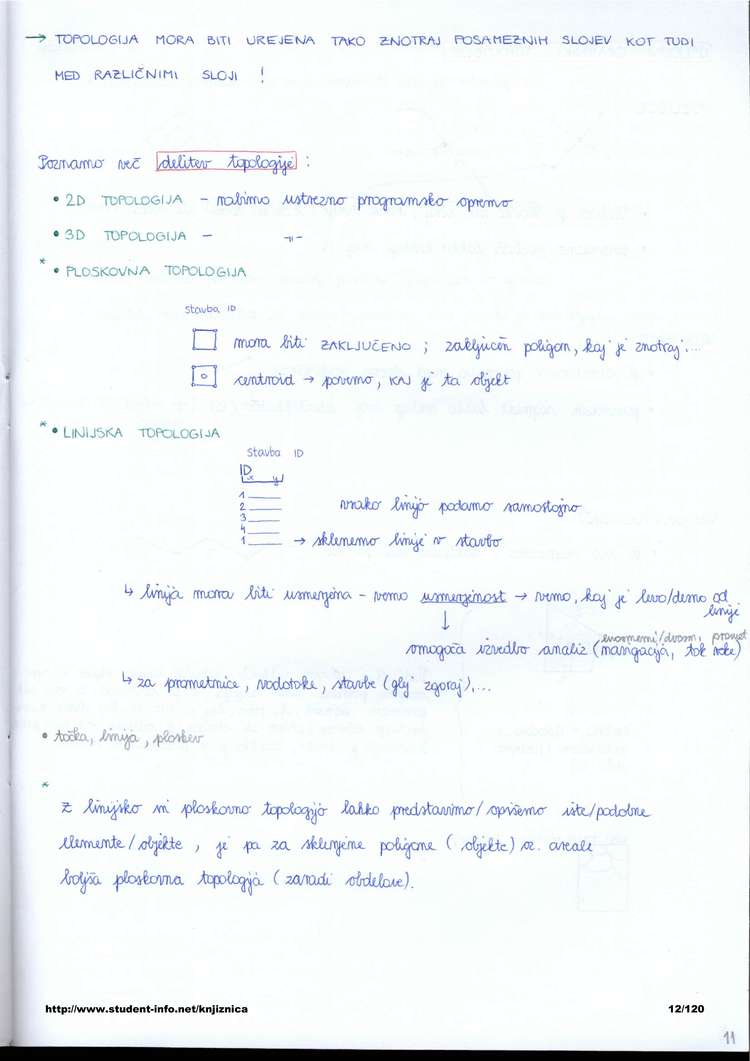 → TOPOLOGIJA MORA BITI UREJENA TAKO ZNOTRAJ POSAMEZNIH SLOJEV KOT TUDI
MED RAZLIČNIMI SLOJI !
Poznamo več delitev topologije :
• 2D TOPOLOGIJA – rabimo ustrezno programsko opremo
• 3D TOPOLOGIJA – –||–
* • PLOSKOVNA TOPOLOGIJA
stavba ID
mora biti ZAKLJUČENO ; zaključen poligon, kaj je znotraj...
centroid → povemo, KAJ je ta objekt
* • LINIJSKA TOPOLOGIJA
stavba ID
ID x y
1
2 vsako linijo podamo samostojno
3
4
1 → sklenemo linije v stavbo
↳ linija mora biti usmerjena – vemo usmerjenost → vemo, kaj je levo/desno od
linije
↓
enosmerni/dvosm. promet
omogoča izvedbo analiz (navigacija, tok reke)
↳ za prometnice, vodotoke, stavbe (glej zgoraj),...
• točka, linija, ploskev
*
Z linijsko in ploskovno topologijo lahko predstavimo/opišemo iste/podobne
elemente/objekte, je pa za sklenjene poligone (objekte) oz. areale
boljša ploskovna topologija (zaradi obdelave).
http://www.student-info.net/knjiznica 12/120
11